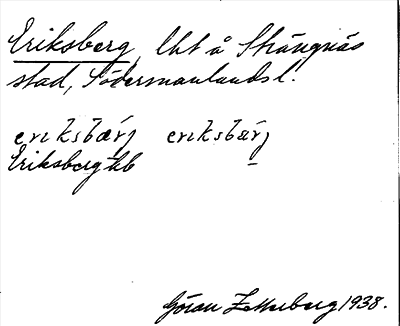 Eriksberg, lht å Strängnäs
stad, Södermanlands l.
eriksbärj eriksbärj
Eriksberg hb
Göran Zetterberg 1938.